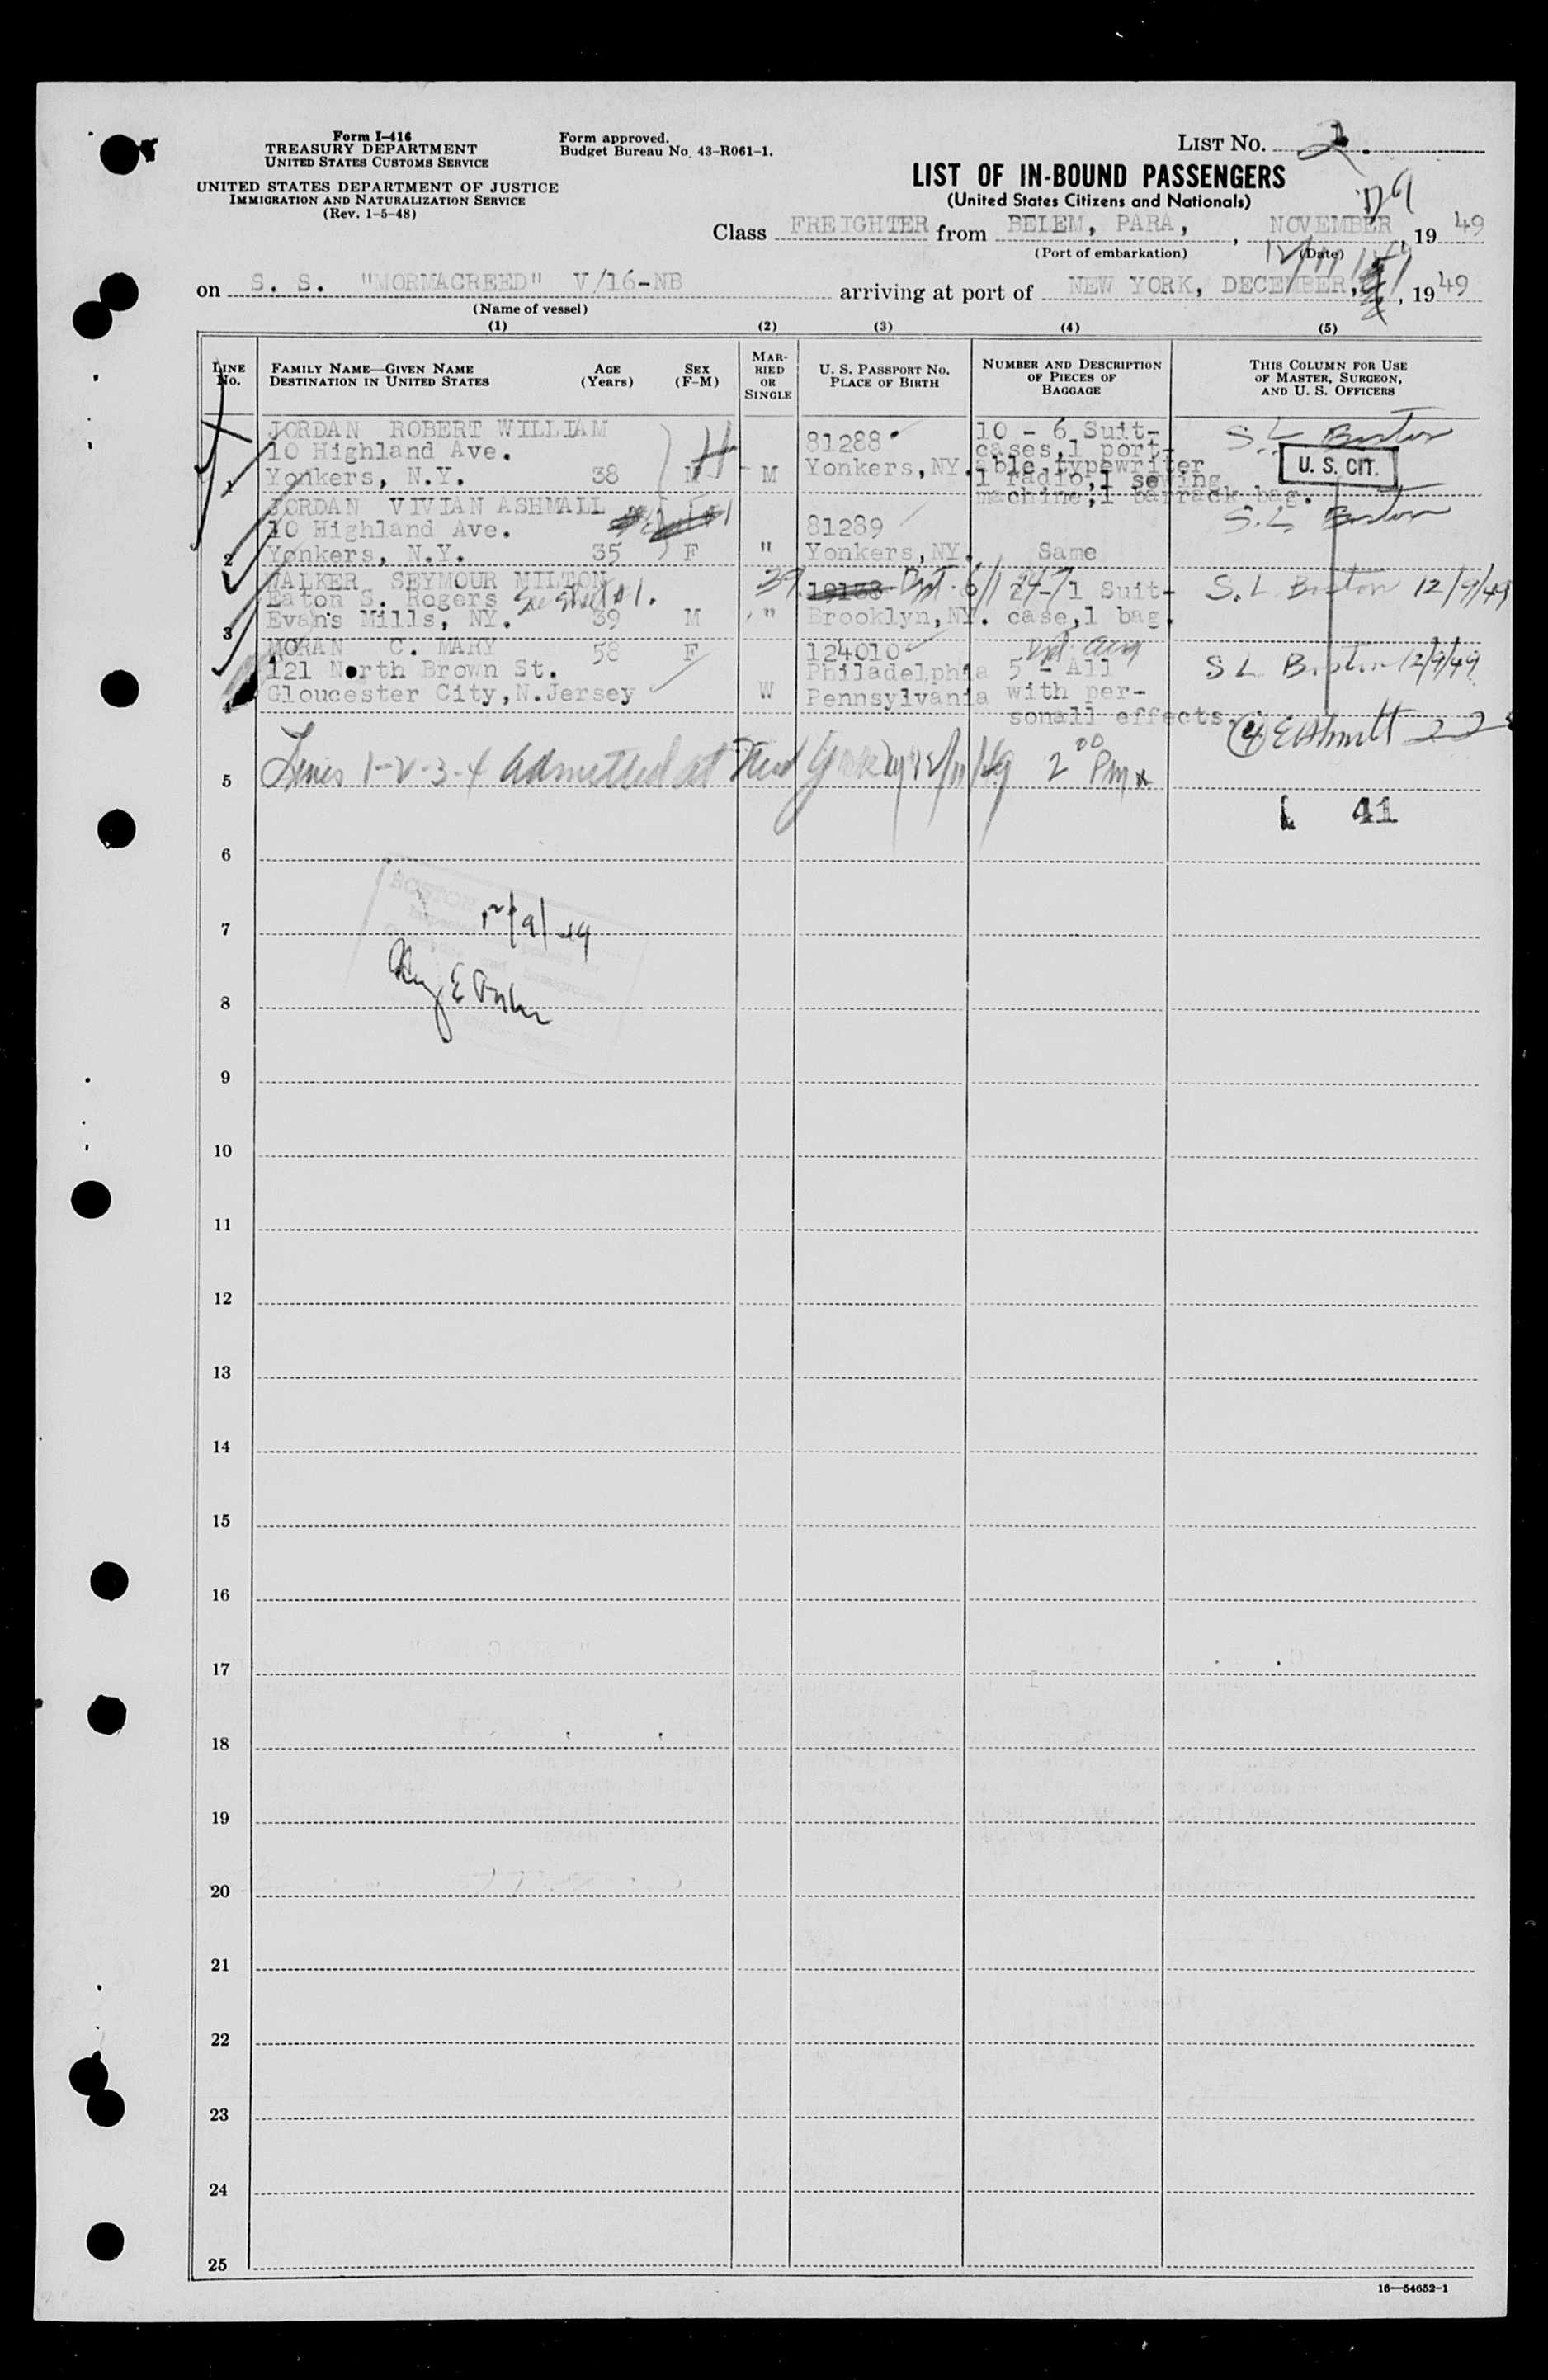 Form I-416
TREASURY DEPARTMENT
UNITED STATES CUSTOMS SERVICE
UNITED STATES DEPARTMENT OF JUSTICE
IMMIGRATION AND NATURALIZATION SERVICE
(Rev. 1-5-48)
Form approved.
Budget Bureau No. 43-R061-1.
LIST No. 2.
LIST OF IN-BOUND PASSENGERS
(United States Citizens and Nationals)
Class FREIGHTER from BELEM, PARA, , NOVEMBER , 19 49
(Port of embarkation) (Date)
on S. S. "MORMACREED" V/16-NB arriving at port of NEW YORK, DECEMBER, , 19 49
(Name of vessel)
(1) (2) (3) (4) (5)
LINE No.
FAMILY NAME—GIVEN NAME
DESTINATION IN UNITED STATES
AGE (Years)
SEX (F-M)
MARRIED OR SINGLE
U. S. PASSPORT NO.
PLACE OF BIRTH
NUMBER AND DESCRIPTION OF PIECES OF BAGGAGE
THIS COLUMN FOR USE OF MASTER, SURGEON, AND U. S. OFFICERS
JORDAN ROBERT WILLIAM 10 - 6 Suit-
10 Highland Ave. 81288 cases,1 port- S.L Boston
1 Yonkers, N.Y. 38 M M Yonkers, NY. able typewriter U. S. CIT.
1 radio,1 sewing
machine,1 barrack bag.
JORDAN VIVIAN ASHMALL S.L Boston
10 Highland Ave. 81289
2 Yonkers, N.Y. 35 F " Yonkers, NY. Same
WALKER SEYMOUR MILTON
Eaton S. Rogers See Sheet #1. 1 Suit- S.L Boston 12/9/49
3 Evan's Mills, NY. 39 M " Brooklyn, NY. case,1 bag.
MORAN C. MARY 58 F 124010
121 North Brown St. Philadelphia 5 - All S L Boston 12/9/49
4 Gloucester City,N.Jersey W Pennsylvania with per-
sonall effects.
5 Lines 1-2-3-4 Admitted at New York NY 12/11/49 2 00 Pm
41
6
7 12/9/49
8
9
10
11
12
13
14
15
16
17
18
19
20
21
22
23
24
25
16—54652-1